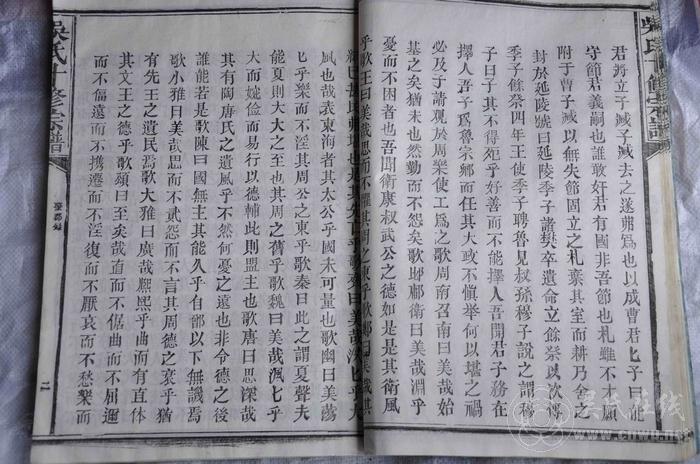 吳氏十修宗譜
君將立子臧子臧去之遂弗爲也以成曹君匕子曰能
守節君義嗣也誰敢奸君有國非吾節也札雖不才願
附于曹子臧以無失節固立之札棄其室而耕乃舍之
封於延陵號曰延陵季子諸樊卒遺命立餘祭以次傳
季子餘祭四年王使季子聘魯見叔孫穆子說之謂穆
子曰子其不得死乎好善而不能擇人吾聞君子務在
擇人吾子爲魯宗卿而任其大政不慎舉何以堪之禍
必及子請觀於周樂使工爲之歌周南召南曰美哉始
基之矣猶未也然勤而不怨矣歌邶鄘衛曰美哉淵乎
憂而不困者也吾聞衛康叔武公之德如是是其衛風
乎歌王曰美哉思而不懼其周之東乎歌鄭曰美哉其
細已甚民弗堪也是其先亡乎歌齊曰美哉泱匕乎大
風也哉表東海者其太公乎國未可量也歌豳曰美蕩
匕乎樂而不淫其周公之東乎歌秦曰此之謂夏聲夫
能夏則大大之至也其周之舊乎歌魏曰美哉渢匕乎
大而婉儉而易行以德輔此則盟主也歌唐曰思深哉
其有陶唐氏之遺風乎不然何憂之遠也非令德之後
誰能若是歌陳曰國無主其能久乎自鄶以下無譏焉
歌小雅曰美哉思而不貳怨而不言其周德之衰乎猶
有先王之遺民焉歌大雅曰廣哉熙熙乎曲而有直体
其文王之德乎歌頌曰至矣哉直而不倨曲而不屈邇
而不偪遠而不携遷而不淫復而不厭哀而不愁樂而
吳氏十修宗譜
二
吴氏在线
www.cnwu.net